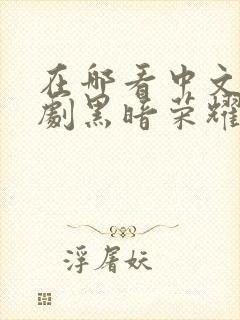 在哪看中文
劇黑暗荣耀
浮屠妖